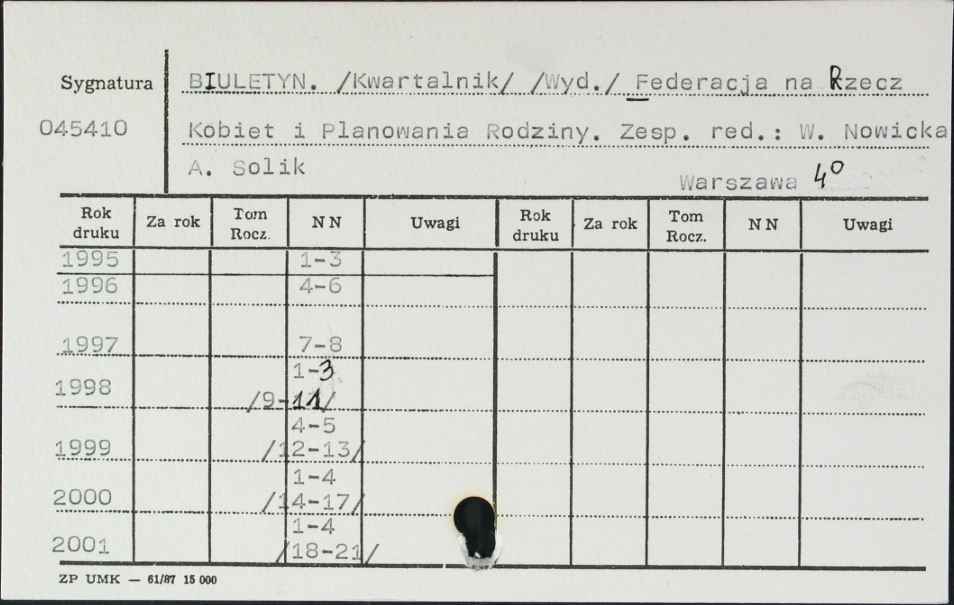 Sygnatura BIULETYN. /Kwartalnik/ /Wyd./ Federacja na Rzecz
045410 Kobiet i Planowania Rodziny. Zesp. red.: W. Nowicka
A. Solik
Warszawa 4°
Rok druku Za rok Tom Rocz. NN Uwagi Rok druku Za rok Tom Rocz. NN Uwagi
1995 1-3
1996 4-6
1997 7-8
1-3
1998 /9-11/
4-5
1999 /12-13/
1-4
2000 /14-17/
1-4
2001 /18-21/
ZP UMK — 61/87 15 000